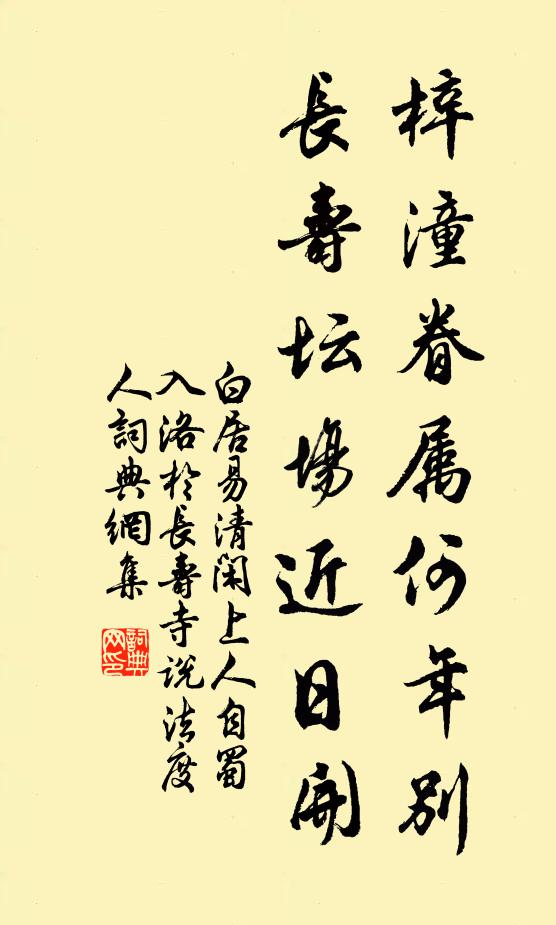 梓潼眷属何年别
長壽坛場近日開
白居易清閑上人自蜀
入洛於長壽寺说法度
人詞典網集
詞典
网印